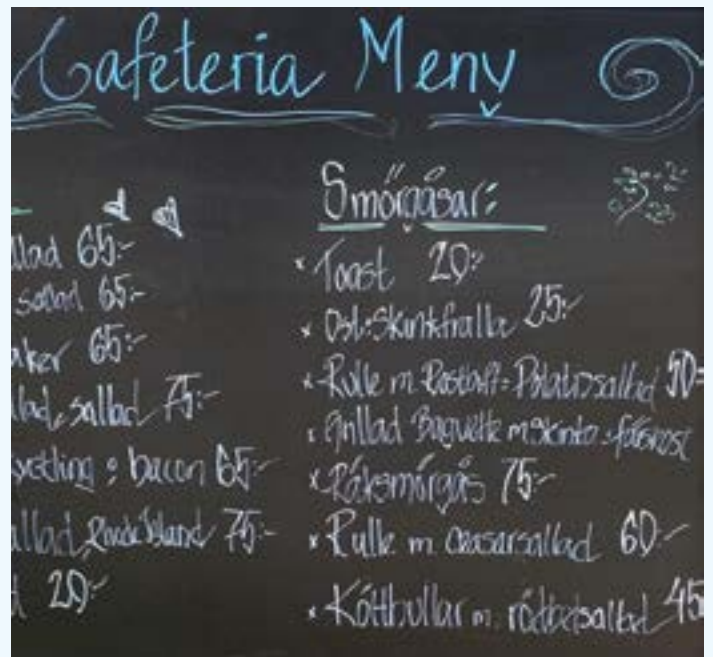 Cafeteria Meny
llad 65:-
sallad 65:-
aker 65:-
llad, sallad 75:-
bacon 65:-
allad, Rhode Island 75:-
20:-
Smörgåsar:
Toast 20:-
Ost & Skinkfralla 25:-
Rulle m. Rostbiff & Potatissallad 50:-
Grillad Baguette m skinka & färskost
Räksmörgås 75:-
Rulle m. ceasarsallad 60:-
Köttbullar m. rödbetsallad 45